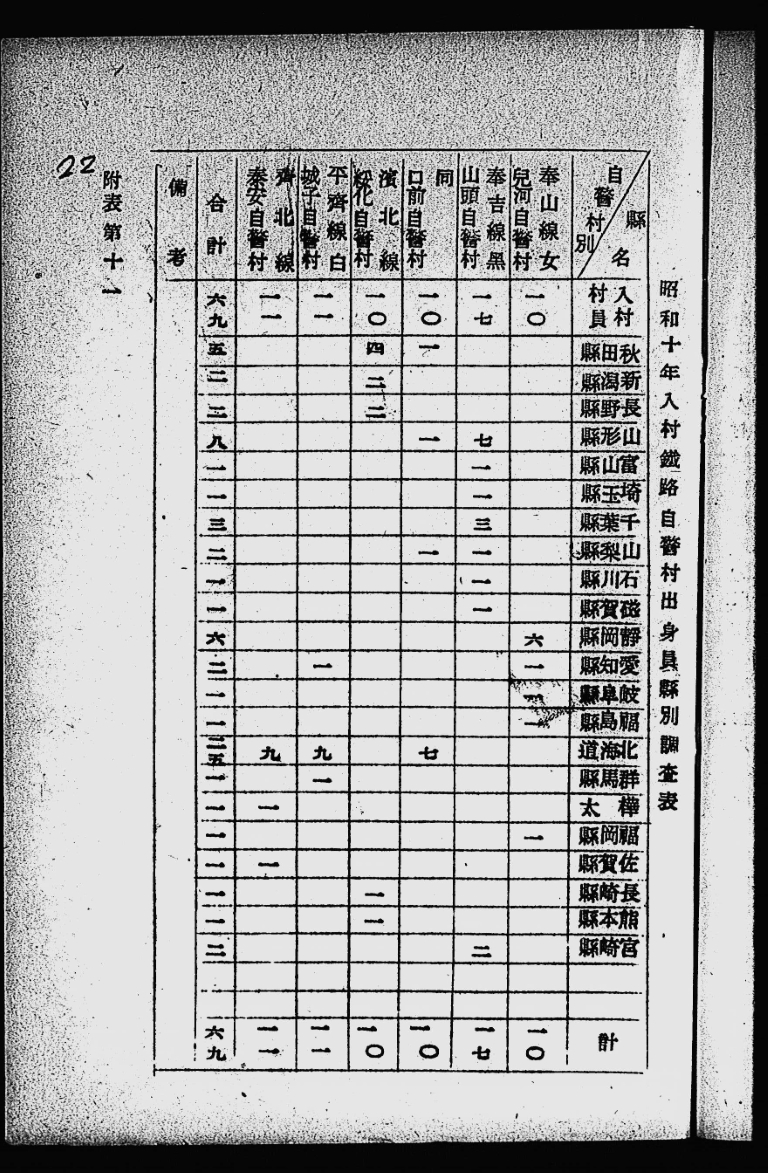 昭和十年入村鐵路自警村出身員縣別調査表
縣名
自警村別
入村村員
秋田縣
新潟縣
長野縣
山形縣
富山縣
埼玉縣
千葉縣
山梨縣
石川縣
滋賀縣
靜岡縣
愛知縣
岐阜縣
福島縣
北海道
群馬縣
樺太
福岡縣
佐賀縣
長崎縣
熊本縣
宮崎縣
計
奉山線女兒河自警村 一〇 六 一 一 一 一 一〇
奉吉線黑山頭自警村 一七 七 一 一 三 一 一 一 二 一七
同口前自警村 一〇 一 一 一 七 一〇
濱北線綏化自警村 一〇 四 二 二 一 一 一〇
平齊線白城子自警村 一一 一 九 一 一一
齊北線泰安自警村 一一 九 一 一 一一
合計 六九 五 二 二 八 一 一 三 二 一 一 六 二 一 一 二五 一 一 一 一 一 一 二 六九
備考
附表第十一
22